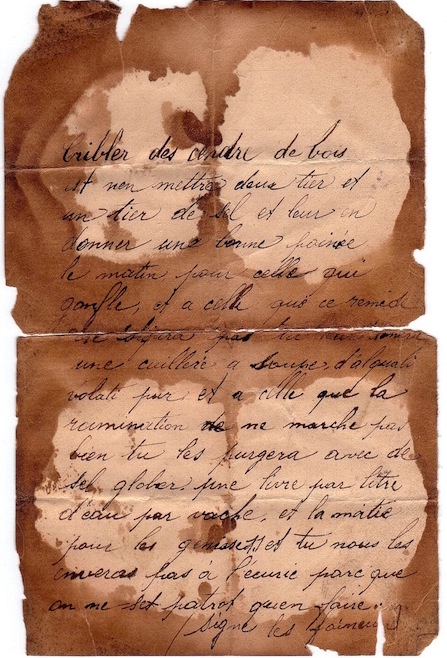 Cribler des cendre de bois
et nen mettre deux tier et
un tier de sel et leur en
donner une bonne poinée
le matin pour celle qui
gonfle, et a celle que ce reméde
pas tu leur
une cuillere a soupe d'alquali
volati pur et a celle que la
rumination de ne marche pas
bien tu les purgera avec de
sel glober une livre par litre
d'eau par vache, et la matié
pour les genisse et tu nous les
enveras pas à l'écurie parc que
on ne set patrop quen faire
signe les